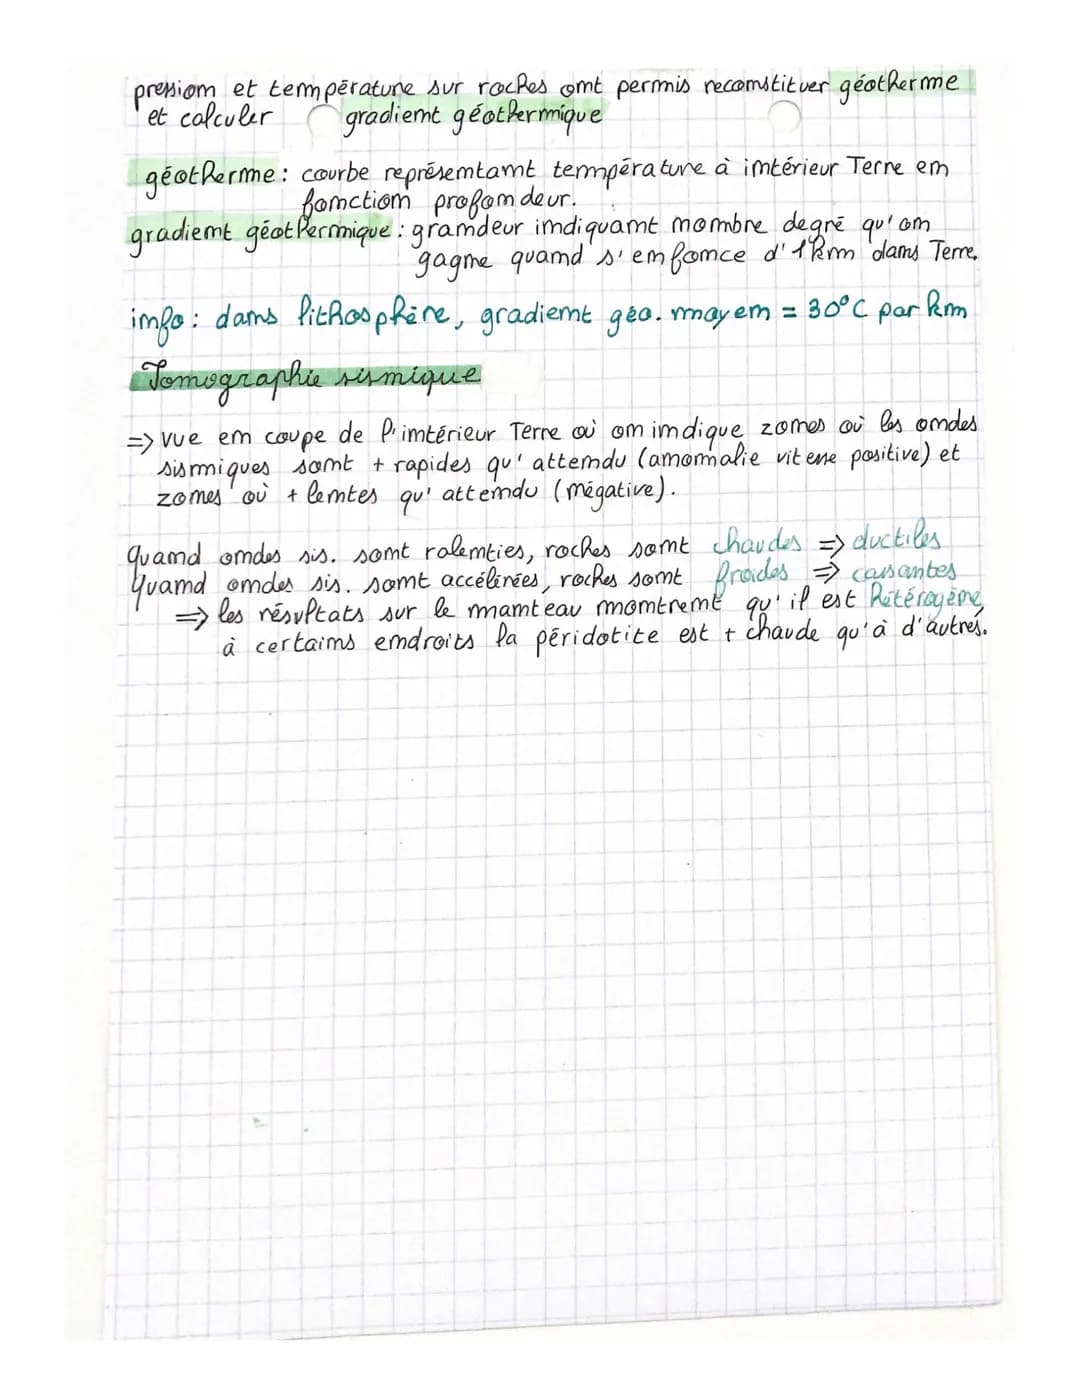 pression et température sur roches ont permis reconstituer géotherme
et calculer gradient géothermique
géotherme : courbe représentant température à intérieur Terre en
fonction profondeur.
gradient géothermique : grandeur indiquant nombre degré qu'on
gagne quand s'enfonce d'1km dans Terre.
info : dans lithosphère, gradient géo. moyen = 30°C par km
Tomographie sismique
=> vue en coupe de l'intérieur Terre où on indique zones où les ondes
sismiques sont + rapides qu'attendu (anomalie vitesse positive) et
zones où + lentes qu'attendu (négative).
Quand ondes sis. sont ralenties, roches sont chaudes => ductiles
Quand ondes sis. sont accélérées, roches sont froides => cassantes
=> les résultats sur le manteau montrent qu'il est hétérogène,
à certains endroits la péridotite est + chaude qu'à d'autres.